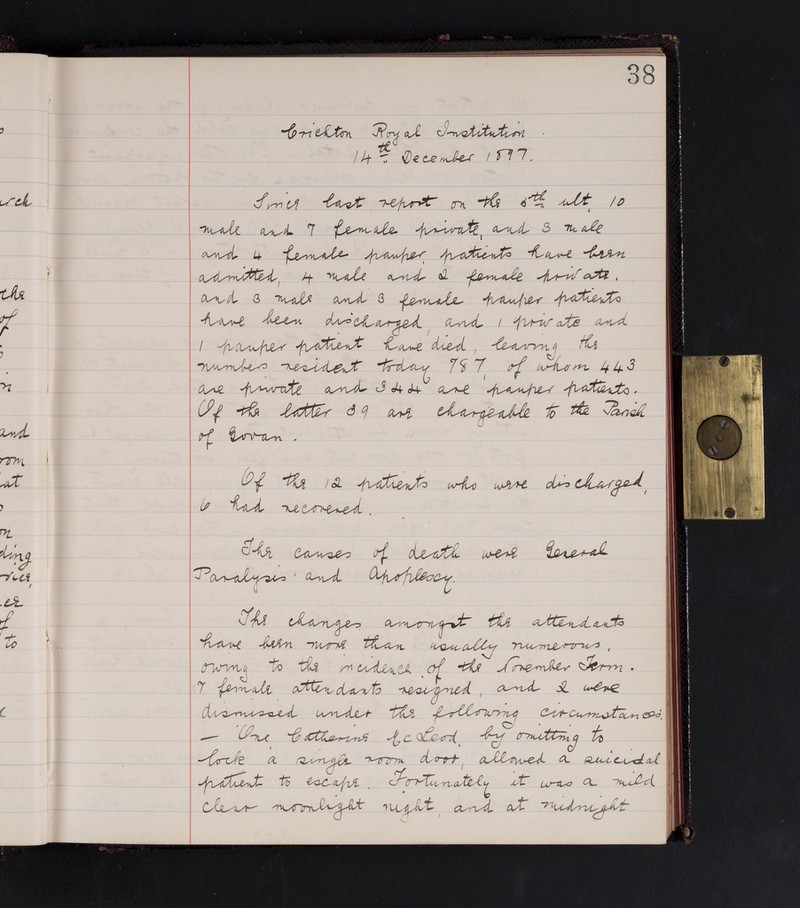 38
Crichton Royal Institution.
14th December 1897.
Since last report on the 5th ult, 10
male and 7 female private, and 3 male
and 4 female pauper, patients have been
admitted, 4 male and 2 female private,
and 3 male and 3 female pauper patients
have been discharged, and 1 private and
1 pauper patient have died, leaving the
number resident today 787, of whom 443
are private and 344 are pauper patients.
Of the latter 39 are chargeable to the Parish
of Govan.
Of the 12 patients who were discharged,
6 had recovered.
The causes of death were General
Paralysis and Apoplexy.
The changes amongst the attendants
have been more than usually numerous,
owing to the incidence of the November Term.
7 female attendants resigned, and 2 were
dismissed under the following circumstances.
— One Catherine McLeod, by omitting to
lock a single room door, allowed a suicidal
patient to escape. Fortunately it was a mild
clear moonlight night, and at midnight
rch
the
of
and
rom
at
on
ding
vice,
of
to